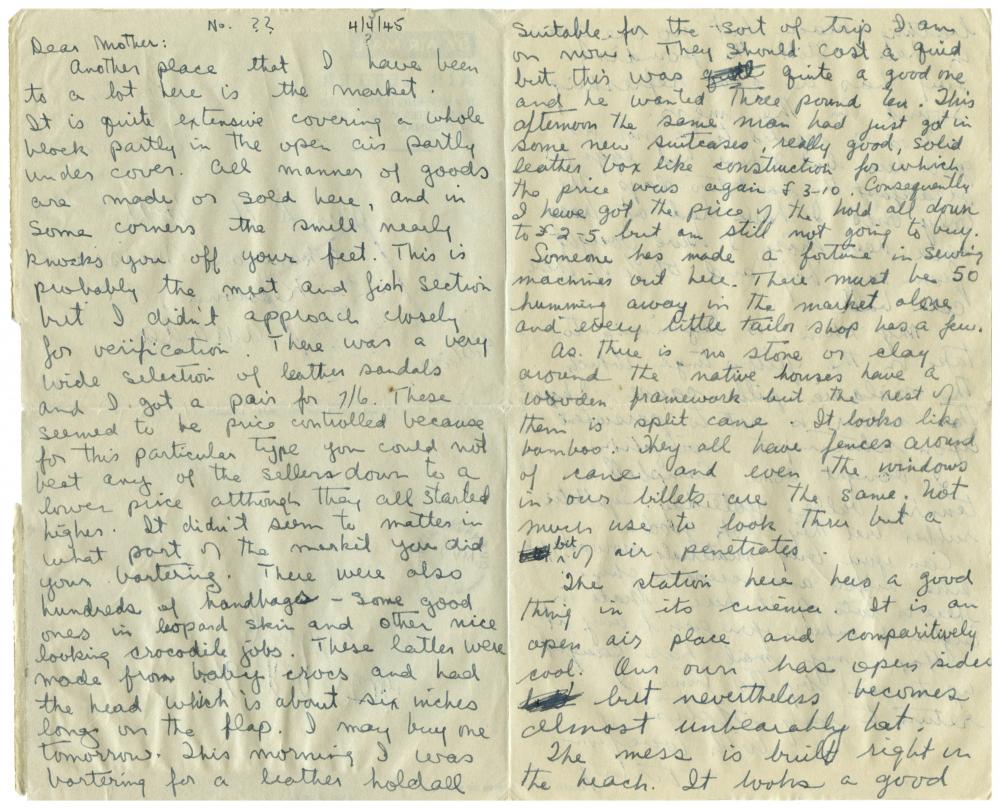 No. ??    4/4/45
?
Dear Mother:
Another place that I have been
to a lot here is the market.
It is quite extensive covering a whole
block partly in the open air partly
under cover. All manner of goods
are made or sold here, and in
some corners the smell nearly
knocks you off your feet. This is
probably the meat and fish section
but I didn't approach closely
for verification. There was a very
wide selection of leather sandals
and I got a pair for 7/6. These
seemed to be price controlled because
for this particular type you could not
beat any of the sellers down to a
lower price although they all started
higher. It didn't seem to matter in
what part of the market you did
your bartering. There were also
hundreds of handbags - some good
ones in leopard skin and other nice
looking crocodile jobs. These latter were
made from baby crocs and had
the head which is about six inches
long on the flap. I may buy one
tomorrow. This morning I was
bartering for a leather holdall
suitable for the sort of trip I am
on now. They should cost a quid
but this was quite a good one
and he wanted three pound ten. This
afternoon the same man had just got in
some new suitcases, really good, solid
leather box like construction for which
the price was again £3-10. Consequently
I have got the price of the hold all down
to £2-5, but am still not going to buy.
Someone has made a fortune in sewing
machines out here. There must be 50
humming away in the market alone
and every little tailor shop has a few.
As there is no stone or clay
around the native houses have a
wooden framework but the rest of
them is split cane. It looks like
bamboo. They all have fences around
of cane and even the windows
in our billets are the same. Not
much use to look thru but a
bit of air penetrates.
The station here has a good
thing in its cinema. It is an
open air place and comparitively
cool. Our own has open sides
but nevertheless becomes
almost unbearably hot.
The mess is built right on
the beach. It looks a good